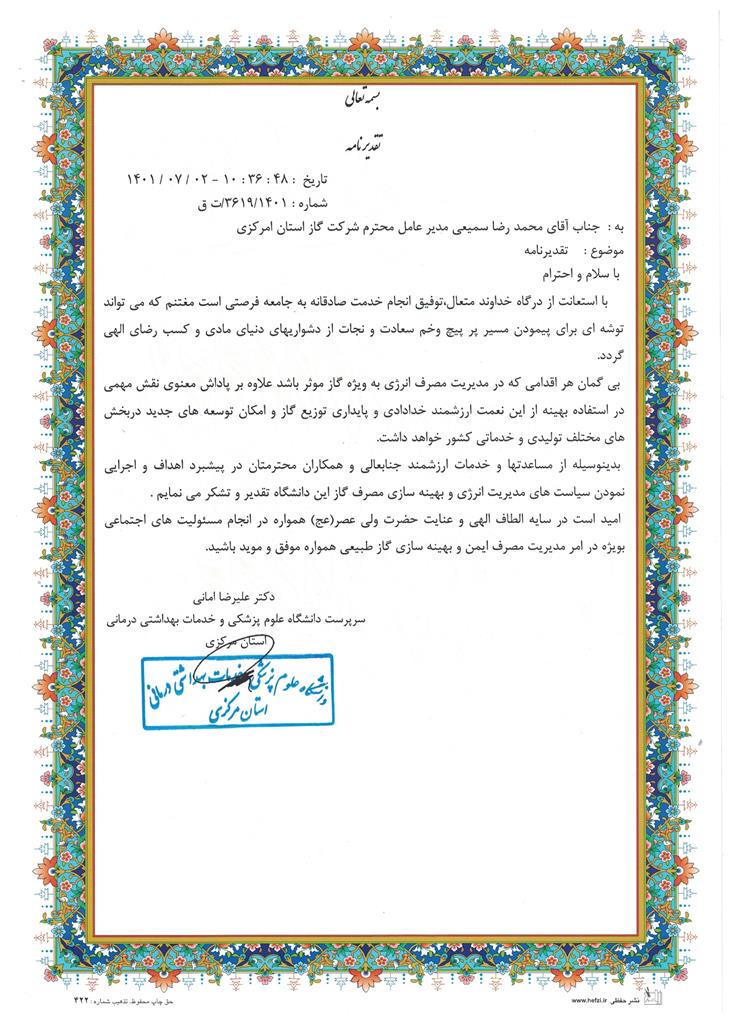 بسمه تعالی
تقدیرنامه
تاریخ : ۴۸ : ۳۶ : ۱۰ - ۰۲ / ۰۷ / ۱۴۰۱
شماره : ۳۶۱۹/۱۴۰۱/ت ق
به : جناب آقای محمد رضا سمیعی مدیر عامل محترم شرکت گاز استان امرکزی
موضوع : تقدیرنامه
با سلام و احترام
با استعانت از درگاه خداوند متعال،توفیق انجام خدمت صادقانه به جامعه فرصتی است مغتنم که می تواند
توشه ای برای پیمودن مسیر پر پیچ وخم سعادت و نجات از دشواریهای دنیای مادی و کسب رضای الهی
گردد.
بی گمان هر اقدامی که در مدیریت مصرف انرژی به ویژه گاز موثر باشد علاوه بر پاداش معنوی نقش مهمی
در استفاده بهینه از این نعمت ارزشمند خدادادی و پایداری توزیع گاز و امکان توسعه های جدید دربخش
های مختلف تولیدی و خدماتی کشور خواهد داشت.
بدینوسیله از مساعدتها و خدمات ارزشمند جنابعالی و همکاران محترمتان در پیشبرد اهداف و اجرایی
نمودن سیاست های مدیریت انرژی و بهینه سازی مصرف گاز این دانشگاه تقدیر و تشکر می نمایم .
امید است در سایه الطاف الهی و عنایت حضرت ولی عصر(عج) همواره در انجام مسئولیت های اجتماعی
بویژه در امر مدیریت مصرف ایمن و بهینه سازی گاز طبیعی همواره موفق و موید باشید.
دکتر علیرضا امانی
سرپرست دانشگاه علوم پزشکی و خدمات بهداشتی درمانی
استان مرکزی
دانشگاه علوم پزشکی و خدمات بهداشتی درمانی
استان مرکزی
نشر حفظی www.hefzi.ir
حق چاپ محفوظ. تذهیب شماره : ۴۲۲